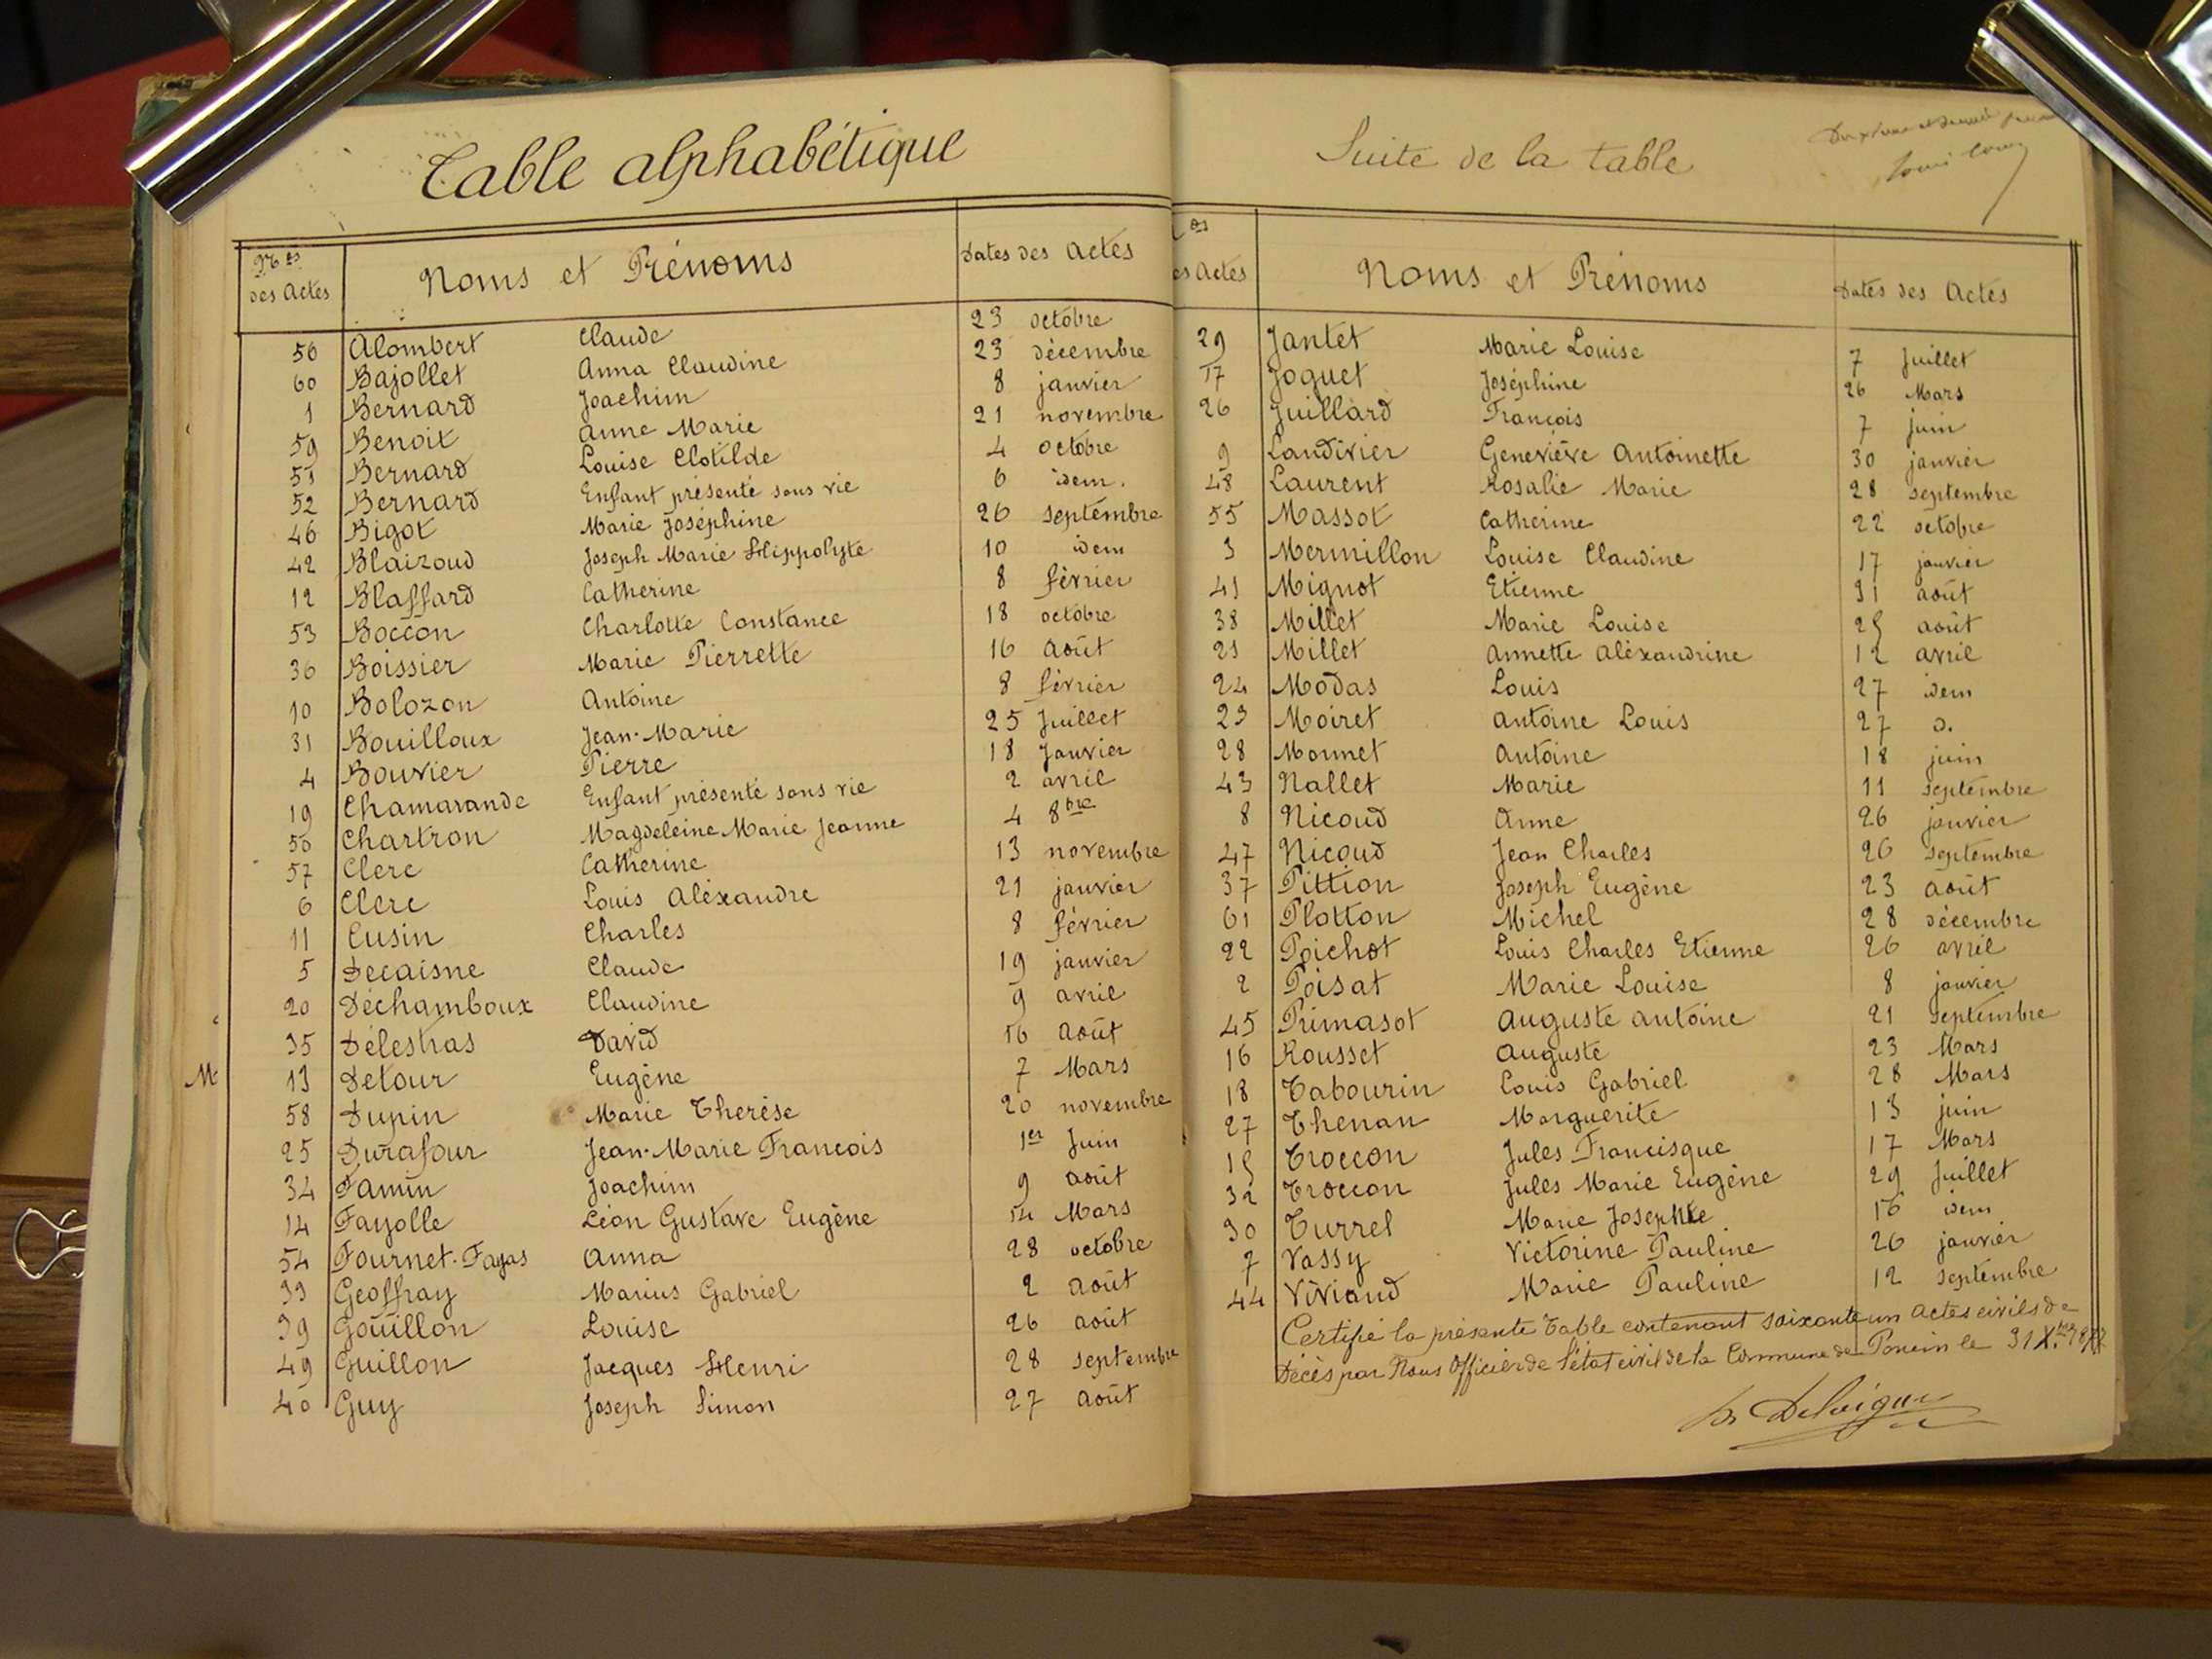 Table alphabétique
Nos des Actes Noms et Prénoms Dates des Actes
56 Alombert Claude 23 octobre
60 Bajollet Anna Claudine 23 décembre
1 Bernard Joachim 8 janvier
59 Benoit Anne Marie 21 novembre
51 Bernard Louise Clotilde 4 octobre
52 Bernard Enfant présenté sans vie 6 idem.
46 Bigot Marie Joséphine 26 septembre
42 Blaizoud Joseph Marie Hippolyte 10 idem
12 Blaffard Catherine 8 février
53 Boccon Charlotte Constance 18 octobre
36 Boissier Marie Pierrette 16 août
10 Bolozon Antoine 8 février
31 Bouilloux Jean-Marie 25 Juillet
4 Bouvier Pierre 18 Janvier
19 Chamarande Enfant présenté sans vie 2 avril
50 Chartron Magdeleine Marie Jeanne 4 8bre
57 Clerc Catherine 13 novembre
6 Clerc Louis Aléxandre 21 janvier
11 Cusin Charles 8 février
5 Decaisne Claude 19 janvier
20 Déchamboux Claudine 9 avril
35 Délestras David 16 Août
M
13 Detour Eugène 7 Mars
58 Dupin Marie Therèse 20 novembre
25 Durafour Jean-Marie Francois 1er Juin
34 Famin Joachim 9 août
14 Fayolle Léon Gustave Eugène 14 Mars
54 Fournet-Fayas Anna 28 octobre
33 Geoffray Marius Gabriel 2 août
39 Gouillon Louise 26 août
49 Guillon Jacques Henri 28 septembre
40 Guy Joseph Simon 27 Août
Suite de la table
es Actes Noms et Prénoms Dates des Actes
29 Jantet Marie Louise 7 Juillet
17 Joguet Joséphine 26 Mars
26 Juillard François 7 juin
9 Landivier Geneviève Antoinette 30 janvier
48 Laurent Rosalie Marie 28 septembre
55 Massot Catherine 22 octobre
3 Mermillon Louise Claudine 17 janvier
41 Mignot Etienne 31 août
38 Millet Marie Louise 25 août
21 Millet Annette Aléxandrine 12 avril
24 Modas Louis 27 idem
23 Moiret Antoine Louis 27 d.
28 Monnet Antoine 18 juin
43 Nallet Marie 11 septembre
8 Nicoud Anne 26 janvier
47 Nicoud Jean Charles 26 septembre
37 Pittion Joseph Eugène 23 août
61 Plotton Michel 28 décembre
22 Poichot Louis Charles Etienne 26 avril
2 Poisat Marie Louise 8 janvier
45 Primasot Auguste Antoine 21 septembre
16 Rousset Auguste 23 Mars
18 Tabourin Louis Gabriel 28 Mars
27 Thenan Marguerite 13 juin
15 Troccon Jules Francisque 17 Mars
32 Troccon Jules Marie Eugène 29 Juillet
30 Turrel Marie Josephte 16 idem
7 Vassy Victorine Pauline 26 janvier
44 Viviand Marie Pauline 12 septembre
Certifié la présente Table contenant soixante un actes civils de
Décès par Nous Officier de l'état civil de la Commune de Poncin le 31 Xbre 1877